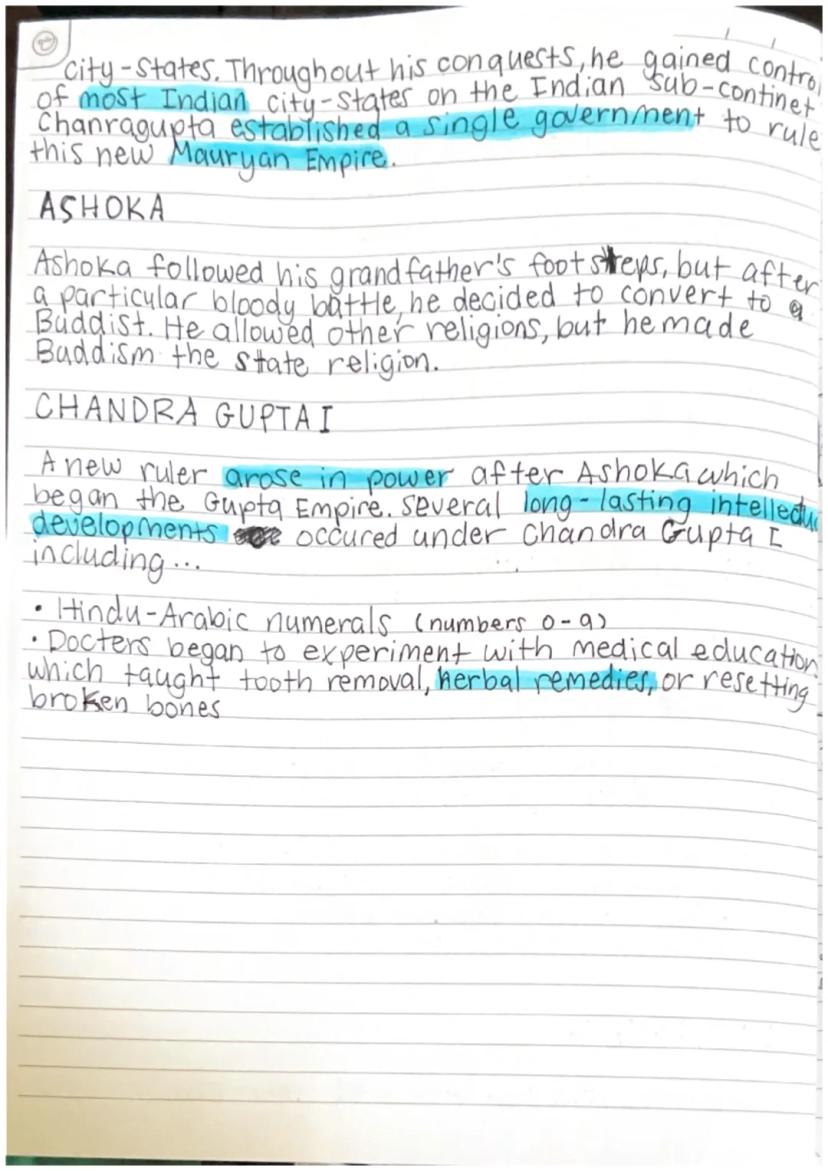 city-states. Throughout his conquests, he gained control
of most Indian city-states on the Indian sub-continet
Chanragupta established a single government to rule
this new Mauryan Empire.
ASHOKA
Ashoka followed his grandfather's footsteps, but after
a particular bloody battle, he decided to convert to a
Buddist. He allowed other religions, but he made
Buddism the state religion.
CHANDRA GUPTA I
A new ruler arose in power after Ashoka which
began the Gupta Empire. Several long-lasting intellectu
developments occured under Chandra Gupta I
including...
• Hindu-Arabic numerals (numbers 0-9)
• Docters began to experiment with medical education
which taught tooth removal, herbal remedies, or resetting
broken bones